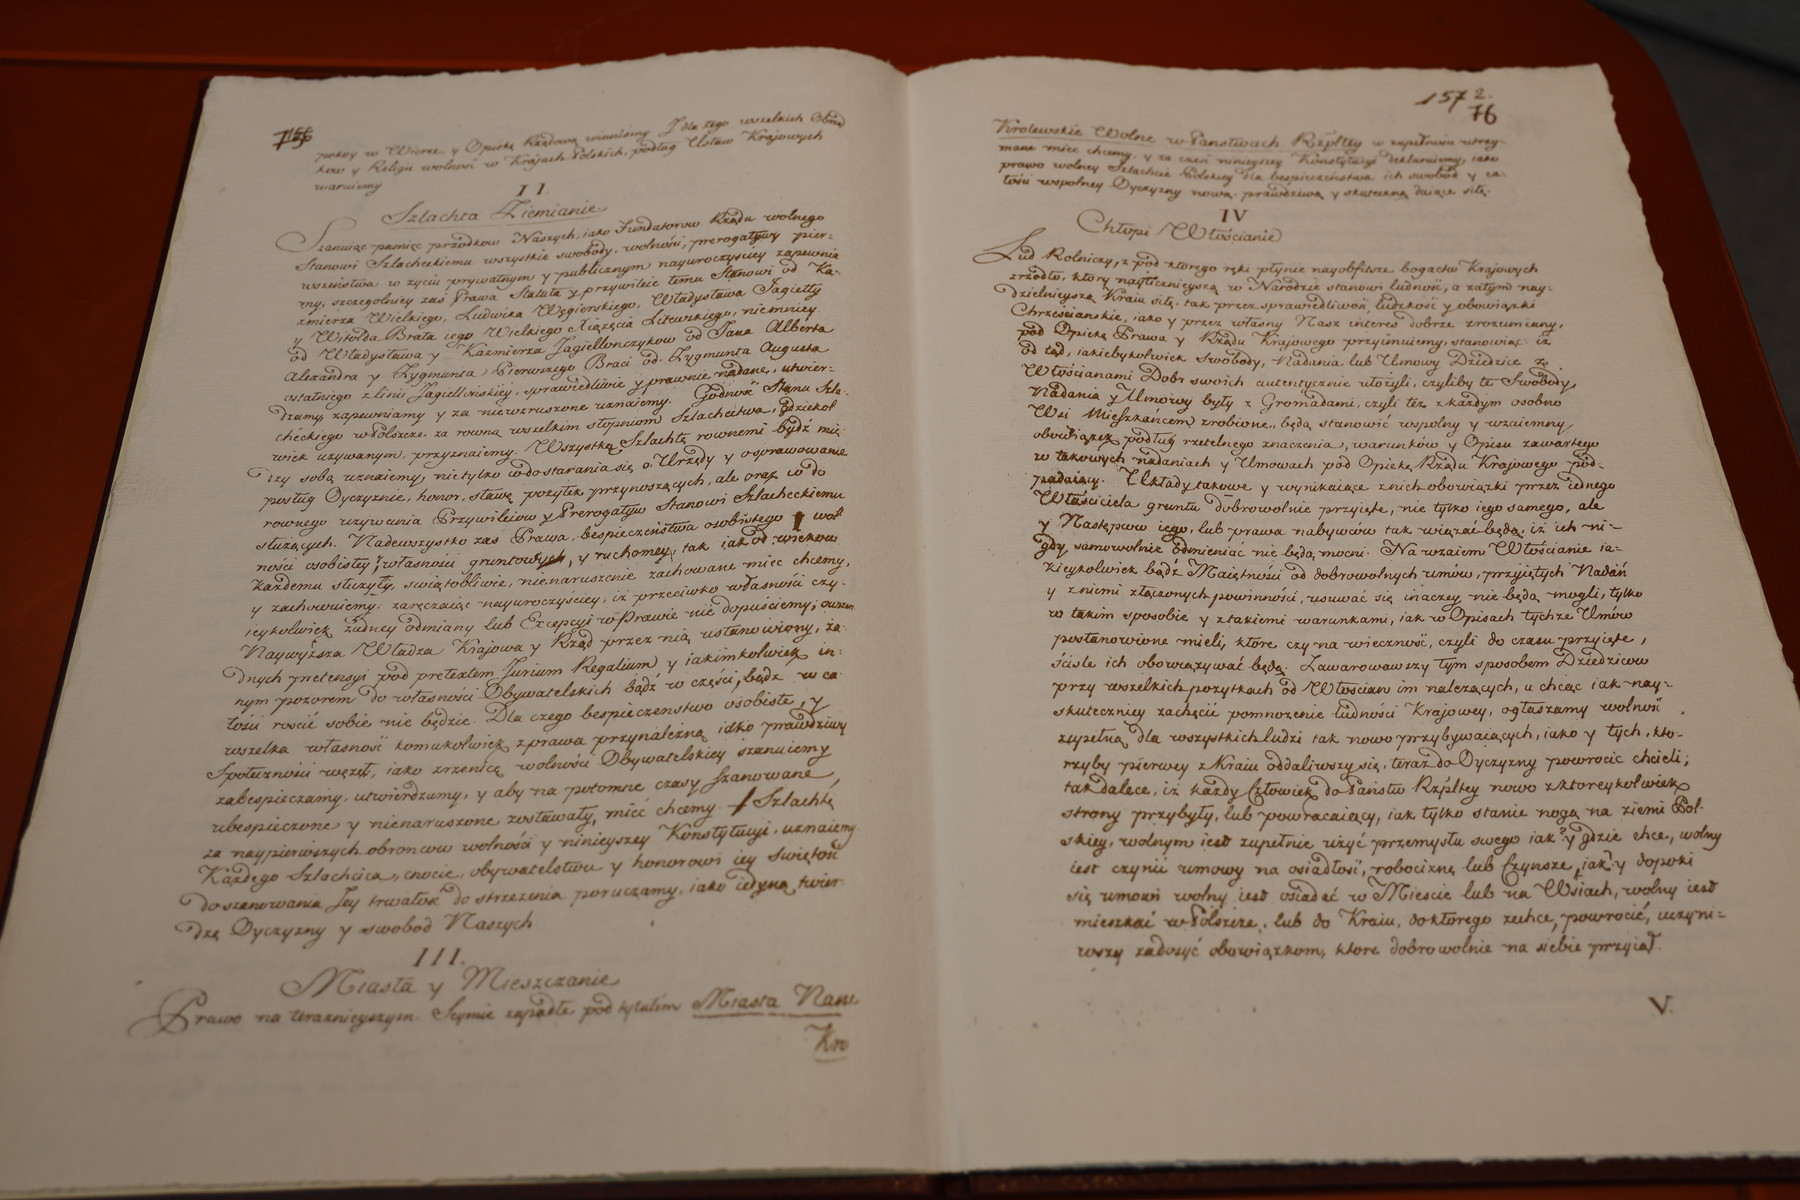 pokoy w Wierze y Opiekę Rządową winniśmy. I dla tego wszelkich Obrząd
ków y Religii wolność w Kraiach Polskich, podług Ustaw Kraiowych
waruiemy
II.
Szlachta Ziemianie
Szanuiąc pamięc przodkow Naszych, iako Fundatorow Rządu wolnego
Stanowi Szlacheckiemu wszystkie swobody, wolności, prerogatywy pier=
wszeństwa w życiu prywatnym y publicznym nayuroczyściey zapewnia
my, szczegolniey zaś Prawa Statuta y przywileie temu Stanowi od Ka-
zmierza Wielkiego, Ludwika Węgierskiego, Władysława Jagiełły
y Witołda Brata iego Wielkiego Xiążęcia Litewskiego, niemniey
od Władysława y Kazimierza Jagiellończykow od Jana Alberta
Alexandra y Zygmunta Pierwszego Braci od Zygmunta Augusta
ostatniego z linii Jagiellońskiey, sprawiedliwie y prawnie nadane, utwier=
dzamy, zapewniamy y za niewzruszone uznaiemy. Godność Stanu Szla-
checkiego w Polszcze za rowną wszelkim stopniom Szlachectwa, gdziekol
wiek używanym, przyznaiemy. Wszystkę Szlachtę rownemi bydź mię
dzy sobą uznaiemy, nie tylko co do starania się o Urzędy y o sprawowanie
posług Oyczyznie, honor, sławę pożytek przynoszących, ale oraz co do
rownego używania Przywileiow y Prerogatyw Stanowi Szlacheckiemu
służących. Nadewszystko zaś Prawa bespieczeństwa osobistego y wol
ności osobistey, własności gruntowych, y ruchomey, tak iak od wiekow
każdemu służyły, swiątobliwie, nienaruszenie zachowane mieć chcemy,
y zachowuiemy; zaręczaiąc nayuroczyściey, iż przeciwko własności czy-
ieykolwiek żadney odmiany lub Excepcyi w Prawie nie dopuściemy; owszem
Naywyższa Władza Kraiowa y Rząd przez nią ustanowiony, ża-
dnych pretensyi pod pretextem Jurium Regalium y iakimkolwiek in-
nym pozorem do własności Obywatelskich bądź w części, bądź w ca
łości rościć sobie nie będzie. Dla czego bespieczenstwo osobiste, y
wszelką własność komukolwiek z prawa przynależną iako prawdziwy
Społeczności węzeł, iako zrzenicę wolności Obywatelskiey szanuiemy
zabespieczamy, utwierdzamy, y aby na potomne czasy szanowane,
ubespieczone y nienaruszone zostawały, mieć chcemy. Szlachtę
za naypierwszych obroncow wolności y ninieyszey Konstytucyi, uznaiemy.
Każdego Szlachcica, cnocie, obywatelstwu y honorowi iey swiętość
do szanowania Jey trwałość do strzeżenia poruczamy, iako iedyną twier
dzę Oyczyzny y swobod Naszych
III.
Miasta y Mieszczanie
Prawo na teraznieyszym Seymie zapadłe pod tytułem Miasta Nasze
Kro
1572.
76
Krolewskie Wolne w Państwach Rzpltey w zupełności utrzy-
mane mieć chcemy, y za część ninieyszey Konstytucyi deklaruiemy, iako
prawo wolney Szlachcie Polskiey dla bespieczeństwa ich swobod y ca-
łości wspolney Oyczyzny nową, prawdziwą y skuteczną daiące siłę.
IV
Chłopi Włościanie
Lud Rolniczy, z pod ktorego ręki płynie nayobfitsze bogactw Kraiowych
zrzodło, ktory nayliczneyszą w Narodzie stanowi ludność, a zatym nay-
dzielnieyszą Kraiu siłę, tak przez sprawiedliwość, ludzkość y obowiązki
Chrześcianskie, iako y przez własny Nasz interes dobrze zrozumiany,
pod Opiekę Prawa y Rządu Kraiowego przyimuiemy, stanowiąc iż
od tąd, iakiebykolwiek Swobody, Nadania lub Umowy Dziedzice z
Włościanami Dobr swoich autentycznie ułożyli, czyliby te Swobody,
Nadania y Umowy były z Gromadami, czyli też z każdym osobno
Wsi Mieszkańcem zrobione, będą stanowić wspolny y wzaiemny
obowiązek podług rzetelnego znaczenia, warunków y Opisu zawartego
w takowych nadaniach y Umowach pod Opiekę Rządu Kraiowego pod-
padaiący. Układy takowe y wynikaiące z nich obowiązki przez iednego
Właściciela gruntu dobrowolnie przyięte, nie tylko iego samego, ale
y Następcow iego, lub prawa nabywców tak wiązać będą, iż ich ni-
gdy samowolnie odmieniać nie będą mocni. Na wzaiem Włościanie ia-
kieykolwiek bądź Maiętności od dobrowolnych umów, przyiętych Nadań
y z niemi złączonych powinności, usuwać się inaczey nie będą mogli, tylko
w takim sposobie y z takiemi warunkami, iak w Opisach tychże Umów
postanowione mieli, ktore czy na wieczność, czyli do czasu przyięte,
ściśle ich obowiązywać będą. Zawarowawszy tym sposobem Dziedzicow
przy wszelkich pożytkach od Włościan im należących, a chcąc iak nay-
skuteczniey zachęcić pomnożenie ludności Kraiowey, ogłaszamy wolność
zupełną dla wszystkich ludzi tak nowo przybywaiących, iako y tych, kto-
rzyby pierwey z Kraiu oddaliwszy się, teraz do Oyczyzny powrocic chcieli;
tak dalece, iż każdy Człowiek do Państw Rzpltey nowo z ktoreykolwiek
strony przybyły, lub powracaiący, iak tylko stanie nogą na ziemi Pol-
skiey, wolnym iest zupełnie użyć przemysłu swego iak y gdzie chce, wolny
iest czynić umowy na osiadłość, robociznę lub Czynsze, iak y dopoki
się umowi wolny iest osiadać w Mieście lub na Wsiach, wolny iest
mieszkać w Polszcze, lub do Kraiu, do ktorego zechce, powrocić, uczyni-
wszy zadosyć obowiązkom, ktore dobrowolnie na siebie przyiął.
V.